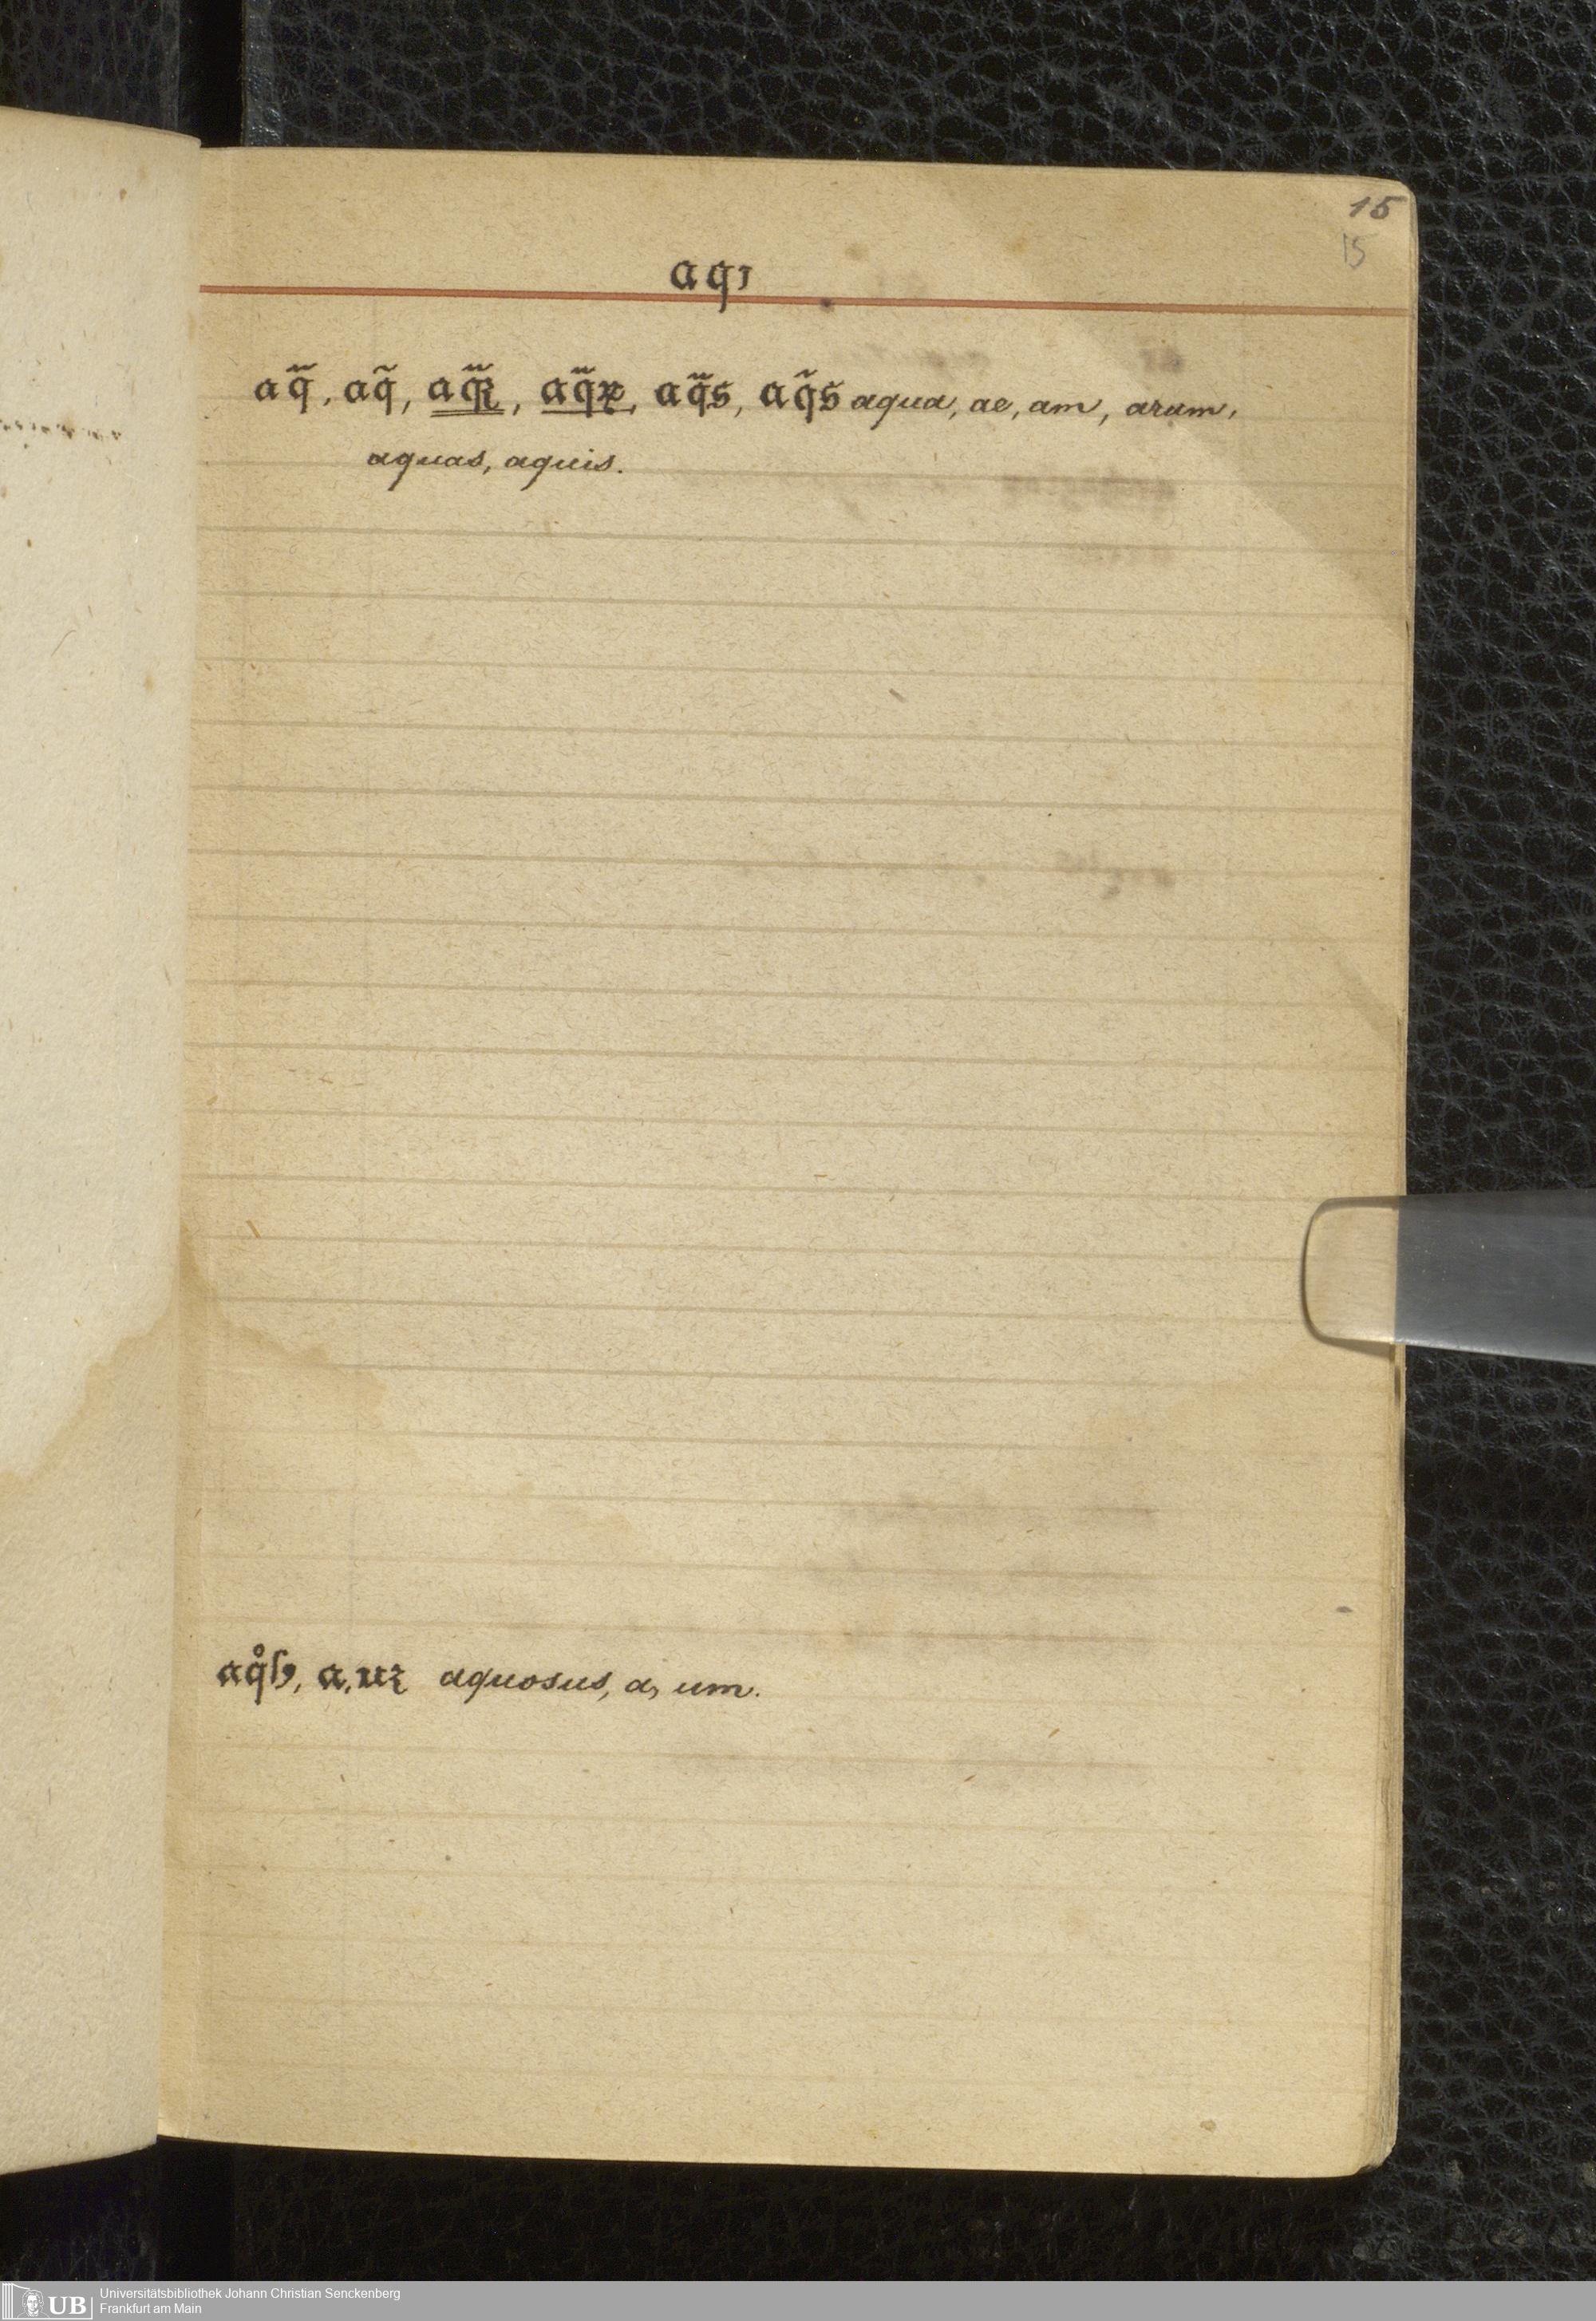 15
15
aqı
aq̃, aq̃, aq̃ꝛ, aq̃ꝝ, aq̃s, aq̃s aqua, ae, am, arum,
aquas, aquis.
aq̊ſꝰ, a, uꝛ aquosus, a, um.
UB Universitätsbibliothek Johann Christian Senckenberg
Frankfurt am Main